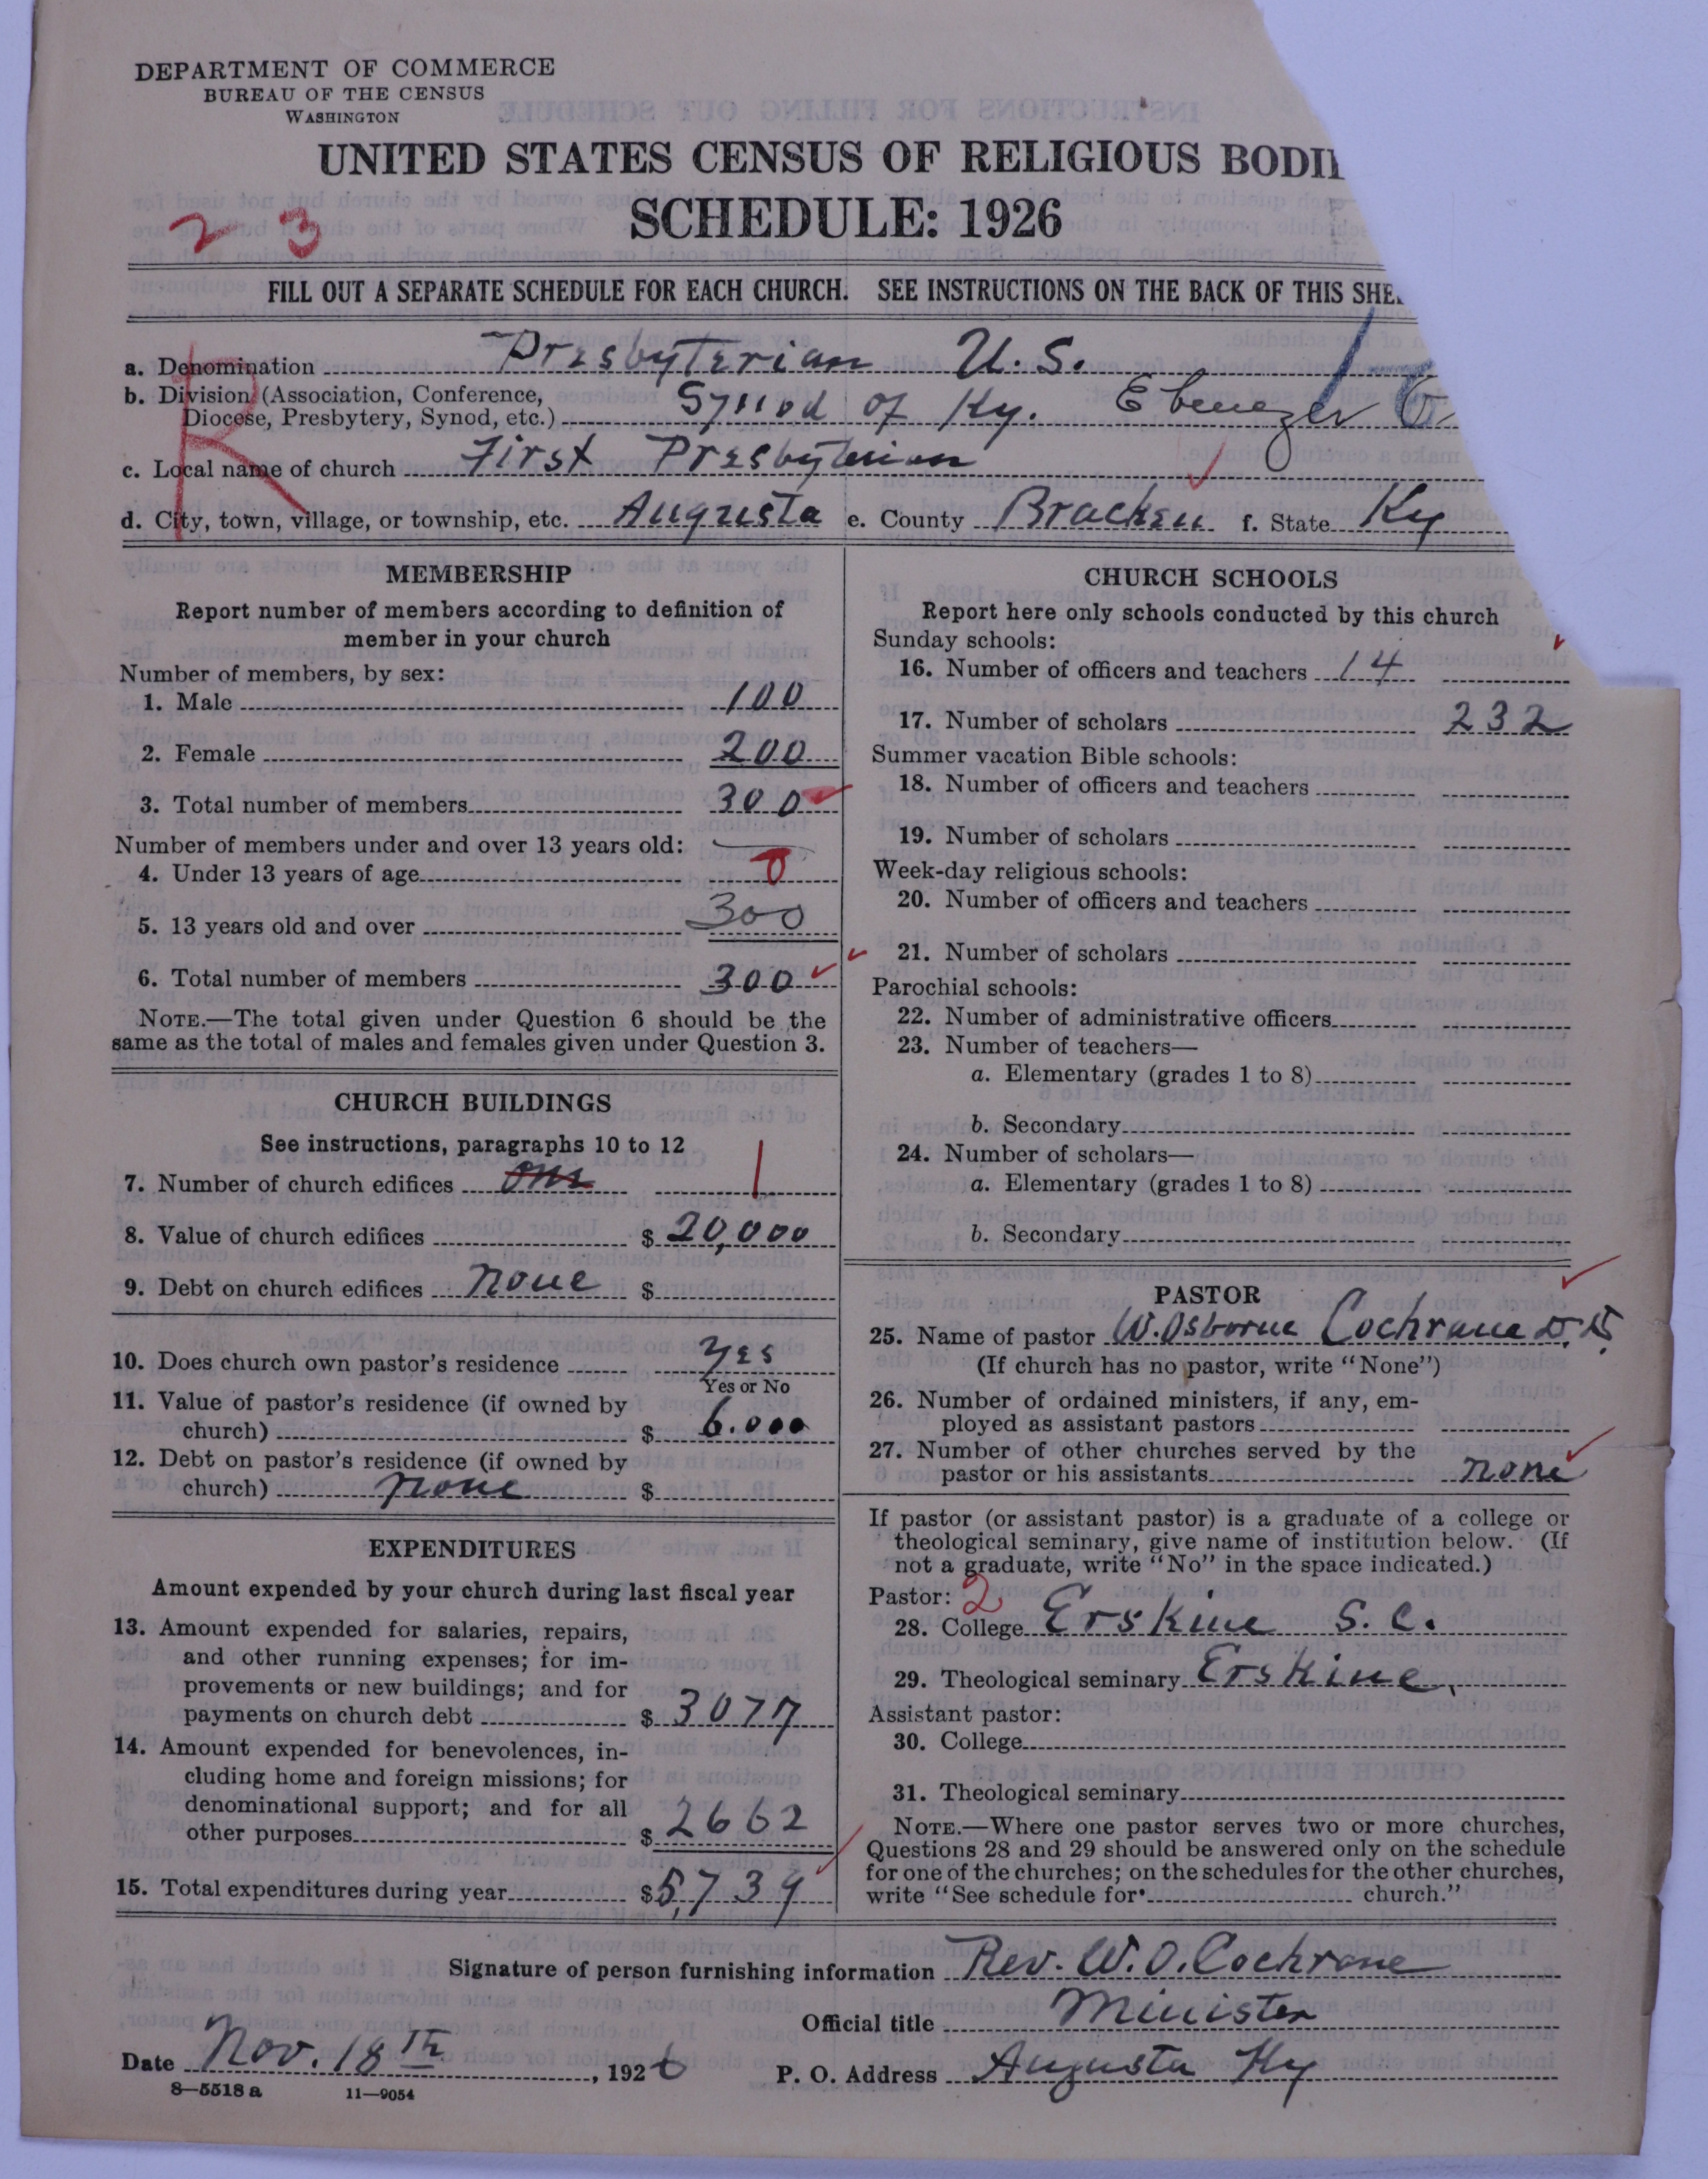 DEPARTMENT OF COMMERCE
BUREAU OF THE CENSUS
WASHINGTON
UNITED STATES CENSUS OF RELIGIOUS BODI
SCHEDULE: 1926
2 3
FILL OUT A SEPARATE SCHEDULE FOR EACH CHURCH. SEE INSTRUCTIONS ON THE BACK OF THIS SHE
R
a. Denomination Presbyterian U.S.
b. Division (Association, Conference, Diocese, Presbytery, Synod, etc.) Synod of Ky. Ebenezer
c. Local name of church First Presbyterian
d. City, town, village, or township, etc. Augusta e. County Bracken f. State Ky
MEMBERSHIP
Report number of members according to definition of
member in your church
Number of members, by sex:
1. Male 100
2. Female 200
3. Total number of members 300
Number of members under and over 13 years old:
4. Under 13 years of age 0
5. 13 years old and over 300
6. Total number of members 300
NOTE.—The total given under Question 6 should be the
same as the total of males and females given under Question 3.
CHURCH BUILDINGS
See instructions, paragraphs 10 to 12
7. Number of church edifices one 1
8. Value of church edifices $ 20,000
9. Debt on church edifices none $
10. Does church own pastor's residence Yes
Yes or No
11. Value of pastor's residence (if owned by
church) $ 6.000
12. Debt on pastor's residence (if owned by
church) none $
EXPENDITURES
Amount expended by your church during last fiscal year
13. Amount expended for salaries, repairs,
and other running expenses; for im-
provements or new buildings; and for
payments on church debt $ 3077
14. Amount expended for benevolences, in-
cluding home and foreign missions; for
denominational support; and for all
other purposes $ 2662
15. Total expenditures during year $ 5,739
CHURCH SCHOOLS
Report here only schools conducted by this church
Sunday schools:
16. Number of officers and teachers 14
17. Number of scholars 232
Summer vacation Bible schools:
18. Number of officers and teachers
19. Number of scholars
Week-day religious schools:
20. Number of officers and teachers
21. Number of scholars
Parochial schools:
22. Number of administrative officers
23. Number of teachers—
a. Elementary (grades 1 to 8)
b. Secondary
24. Number of scholars—
a. Elementary (grades 1 to 8)
b. Secondary
PASTOR
25. Name of pastor W. Osborne Cochrane D.D.
(If church has no pastor, write "None")
26. Number of ordained ministers, if any, em-
ployed as assistant pastors
27. Number of other churches served by the
pastor or his assistants none
If pastor (or assistant pastor) is a graduate of a college or
theological seminary, give name of institution below. (If
not a graduate, write "No" in the space indicated.)
Pastor: 2
28. College Erskine S.C.
29. Theological seminary Erskine
Assistant pastor:
30. College
31. Theological seminary
NOTE.—Where one pastor serves two or more churches,
Questions 28 and 29 should be answered only on the schedule
for one of the churches; on the schedules for the other churches,
write "See schedule for church."
Signature of person furnishing information Rev. W. O. Cochrane
Official title Minister
Date Nov. 18th, 1926 P. O. Address Augusta Ky
8—5518 a 11—9054